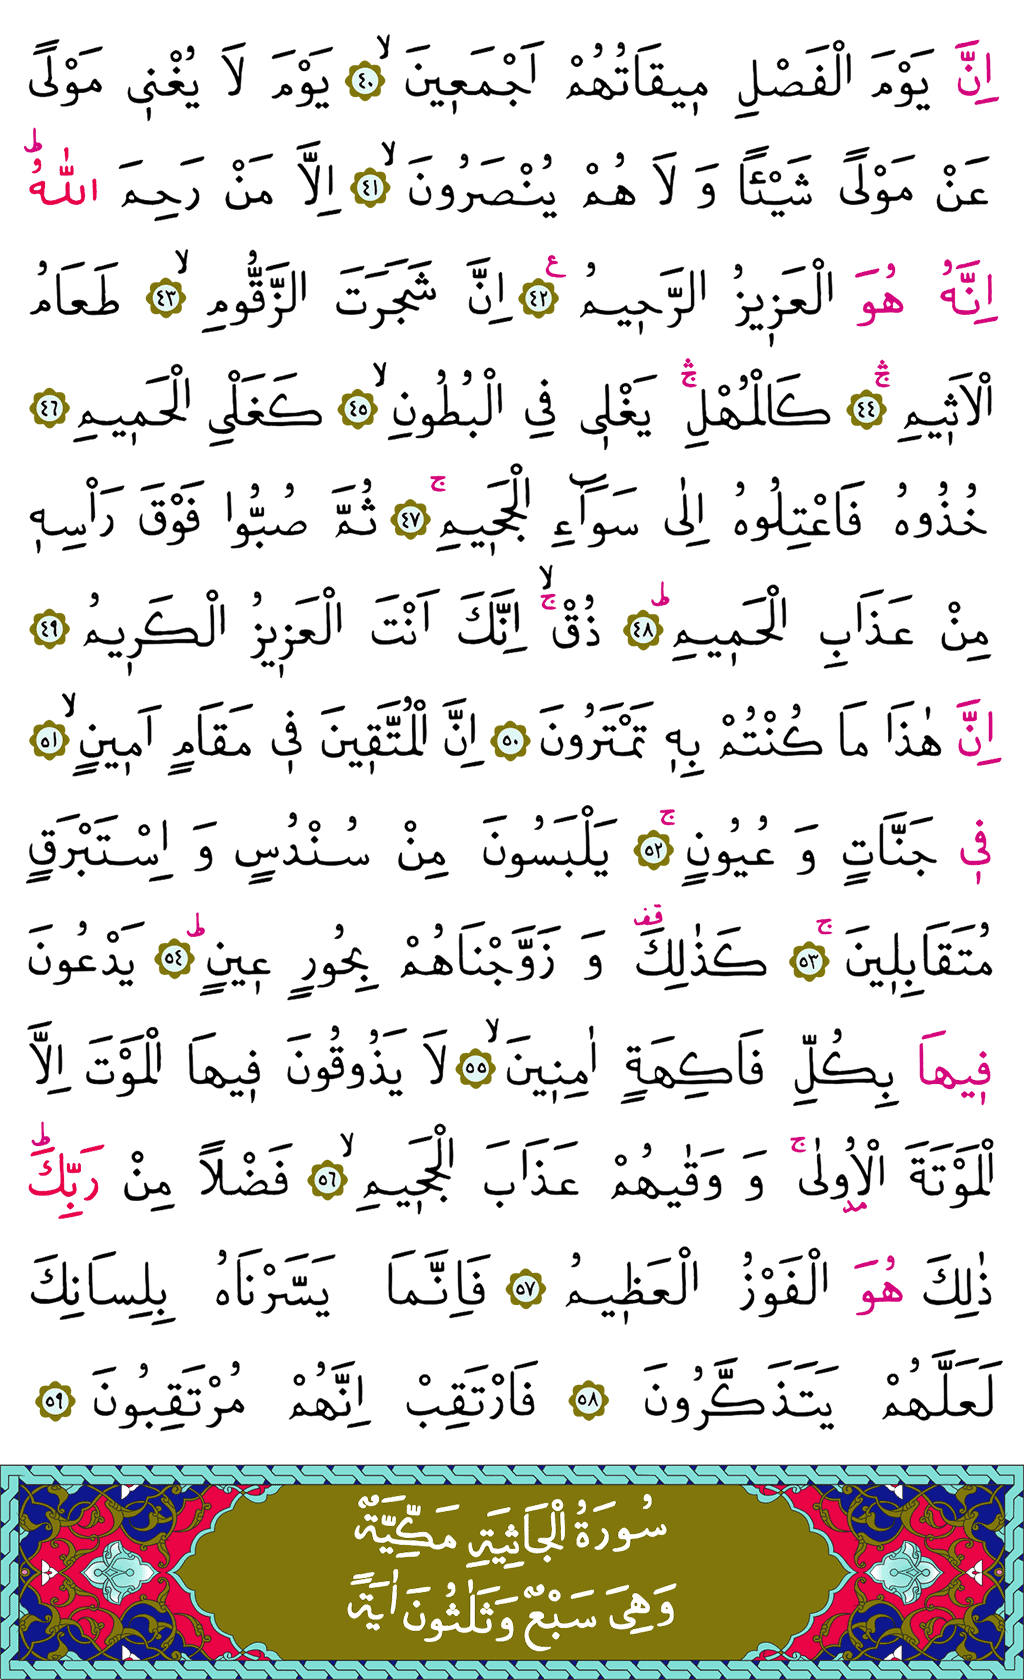 اِنَّ يَوْمَ الْفَصْلِ م۪يقَاتُهُمْ اَجْمَع۪ينَۙ ﴿٤٠﴾ يَوْمَ لَا يُغْن۪ي مَوْلًى
عَنْ مَوْلًى شَيْـًٔا وَ لَا هُمْ يُنْصَرُونَۙ ﴿٤١﴾ اِلَّا مَنْ رَحِمَ اللّٰهُۜ
اِنَّهُ هُوَ الْعَز۪يزُ الرَّح۪يمُ ﴿٤٢﴾ ع اِنَّ شَجَرَتَ الزَّقُّومِۙ ﴿٤٣﴾ طَعَامُ
الْاَث۪يمِۚۛ ﴿٤٤﴾ كَالْمُهْلِۚۛ يَغْل۪ي فِي الْبُطُونِۙ ﴿٤٥﴾ كَغَلْيِ الْحَم۪يمِ ﴿٤٦﴾
خُذُوهُ فَاعْتِلُوهُ اِلٰى سَوَٓاءِ الْجَح۪يمِۚ ﴿٤٧﴾ ثُمَّ صُبُّوا فَوْقَ رَاْسِه۪
مِنْ عَذَابِ الْحَم۪يمِۜ ﴿٤٨﴾ ذُقْۙۚ اِنَّكَ اَنْتَ الْعَز۪يزُ الْكَر۪يمُ ﴿٤٩﴾
اِنَّ هٰذَا مَا كُنْتُمْ بِه۪ تَمْتَرُونَ ﴿٥٠﴾ اِنَّ الْمُتَّق۪ينَ ف۪ي مَقَامٍ اَم۪ينٍۙ ﴿٥١﴾
ف۪ي جَنَّاتٍ وَ عُيُونٍۚ ﴿٥٢﴾ يَلْبَسُونَ مِنْ سُنْدُسٍ وَ اِسْتَبْرَقٍ
مُتَقَابِل۪ينَۚ ﴿٥٣﴾ كَذٰلِكَ قف وَ زَوَّجْنَاهُمْ بِحُورٍ ع۪ينٍۜ ﴿٥٤﴾ يَدْعُونَ
ف۪يهَا بِكُلِّ فَاكِهَةٍ اٰمِن۪ينَۙ ﴿٥٥﴾ لَا يَذُوقُونَ ف۪يهَا الْمَوْتَ اِلَّا
الْمَوْتَةَ الْاُو۫لٰىۚ وَ وَقٰيهُمْ عَذَابَ الْجَح۪يمِۙ ﴿٥٦﴾ فَضْلًا مِنْ رَبِّكَۜ
ذٰلِكَ هُوَ الْفَوْزُ الْعَظ۪يمُ ﴿٥٧﴾ فَاِنَّمَا يَسَّرْنَاهُ بِلِسَانِكَ
لَعَلَّهُمْ يَتَذَكَّرُونَ ﴿٥٨﴾ فَارْتَقِبْ اِنَّهُمْ مُرْتَقِبُونَ ﴿٥٩﴾
سُورَةُ الْجَاثِيَةِ مَكِّيَّةٌ
وَهِيَ سَبْعٌ وَثَلٰثُونَ اٰيَةً